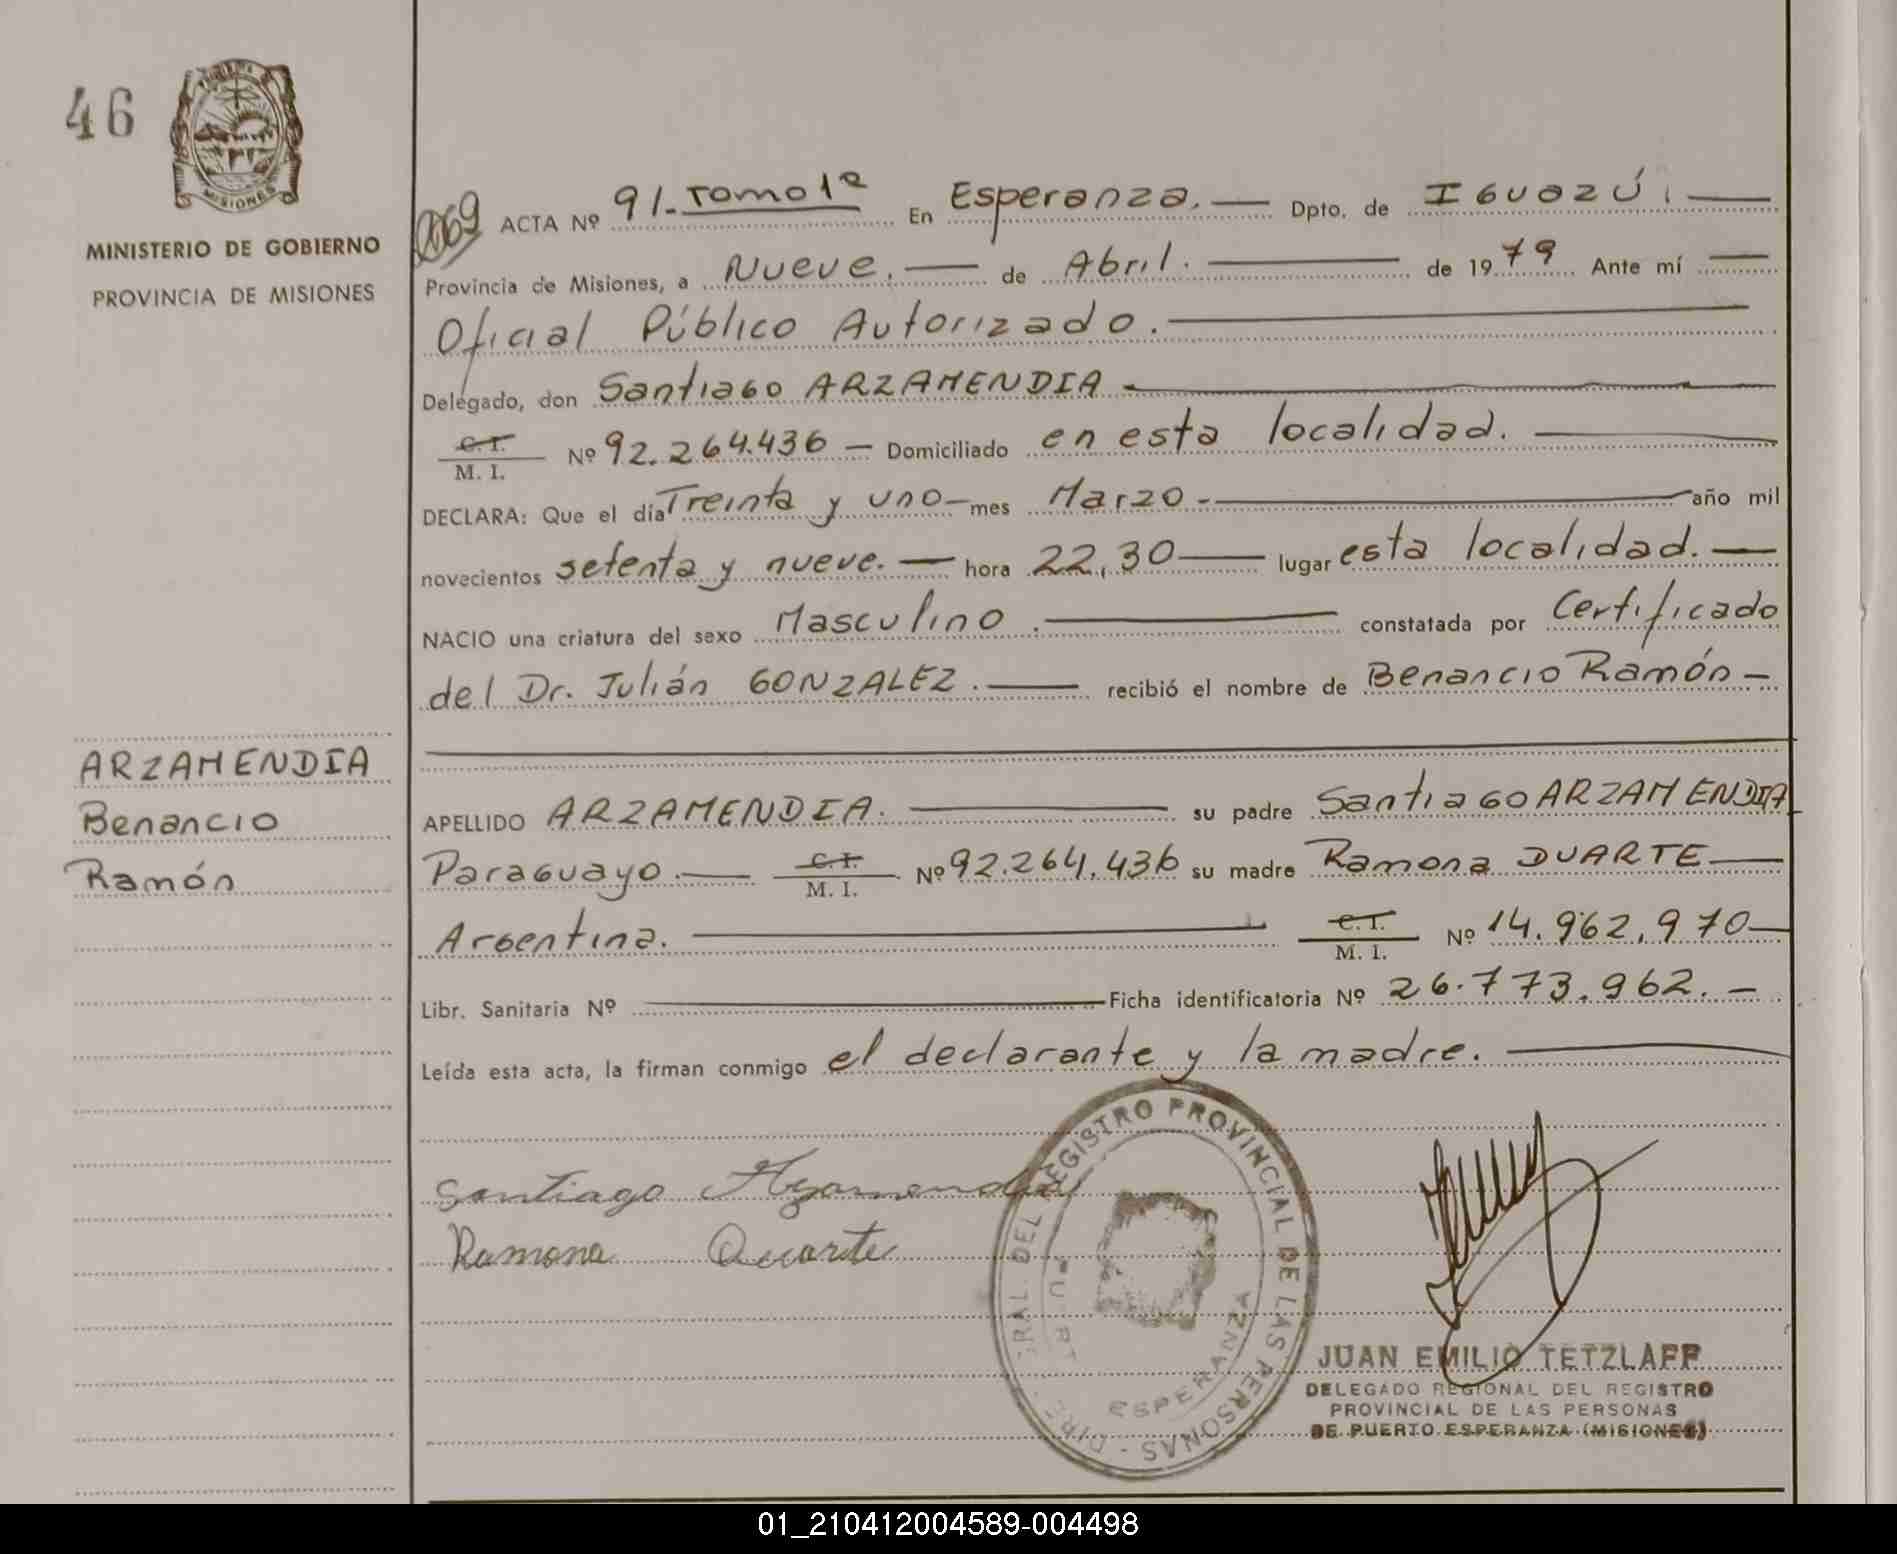 46
MISIONES
MINISTERIO DE GOBIERNO
PROVINCIA DE MISIONES
ARZAMENDIA
Benancio
Ramón
ACTA Nº 91.Tomo 1º En Esperanza. Dpto. de IGUAZÚ.
Provincia de Misiones, a Nueve. de Abril. de 1979 Ante mí
Oficial Público Autorizado.
Delegado, don Santiago ARZAMENDIA
C. I.
M. I. Nº 92.264.436 Domiciliado en esta localidad.
DECLARA: Que el día Treinta y uno mes Marzo año mil
novecientos setenta y nueve. hora 22,30 lugar esta localidad.
NACIO una criatura del sexo Masculino. constatada por Certificado
del Dr. Julián GONZALEZ. recibió el nombre de Benancio Ramón
APELLIDO ARZAMENDIA. su padre Santiago ARZAMENDIA
Paraguayo. C. I.
M. I. Nº 92.264.436 su madre Ramona DUARTE
Argentina. C. I.
M. I. Nº 14.962.970
Libr. Sanitaria Nº Ficha identificatoria Nº 26.773.962.
Leída esta acta, la firman conmigo el declarante y la madre.
Santiago
Ramona Duarte
REGISTRO PROVINCIAL DE LAS PERSONAS
ESPERANZA
JUAN EMILIO TETZLAFF
DELEGADO REGIONAL DEL REGISTRO
PROVINCIAL DE LAS PERSONAS
DE PUERTO ESPERANZA (MISIONES)
01_210412004589-004498